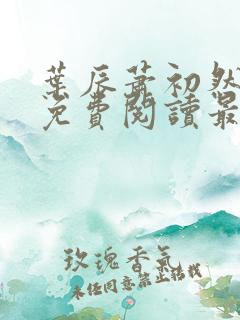 葉辰蕭初然
免費閱讀最
玫瑰香氣
未經同意禁止轉載